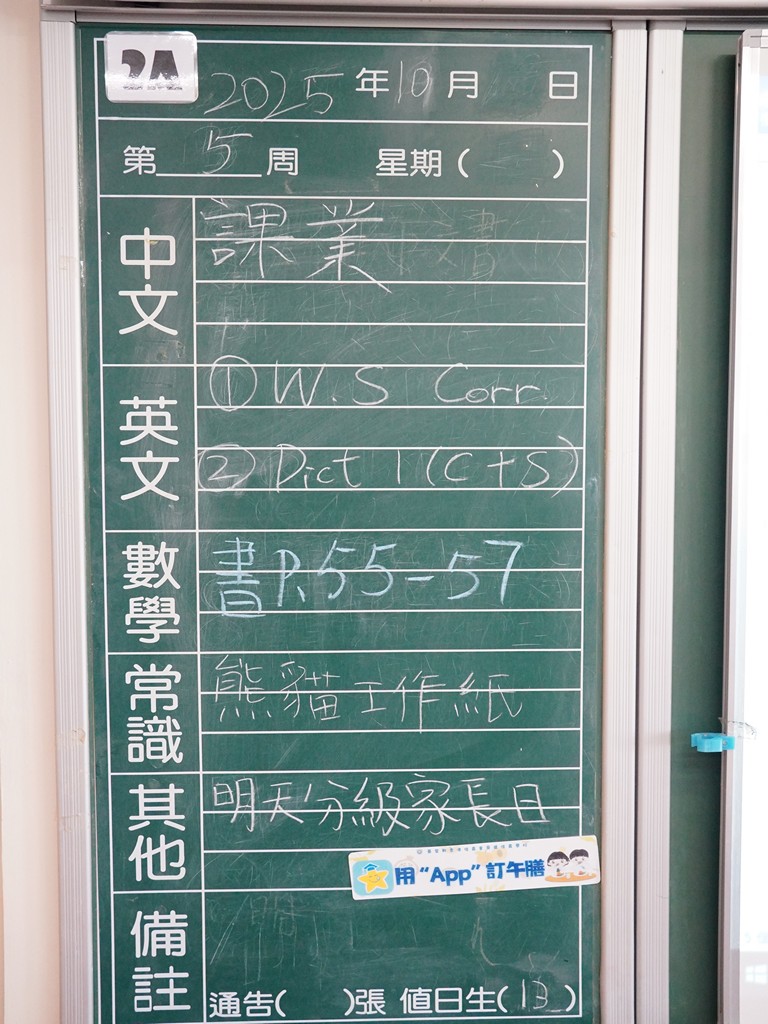 2A
2025 年 10 月 日
第 5 周 星期 ( )
中文 課業
英文 ① W.S Corr.
② Dict 1 (C+S)
數學 書 P.55-57
常識 熊貓工作紙
其他 明天分級家長日
用 “App” 訂午膳
備註
通告( )張 值日生( 13 )